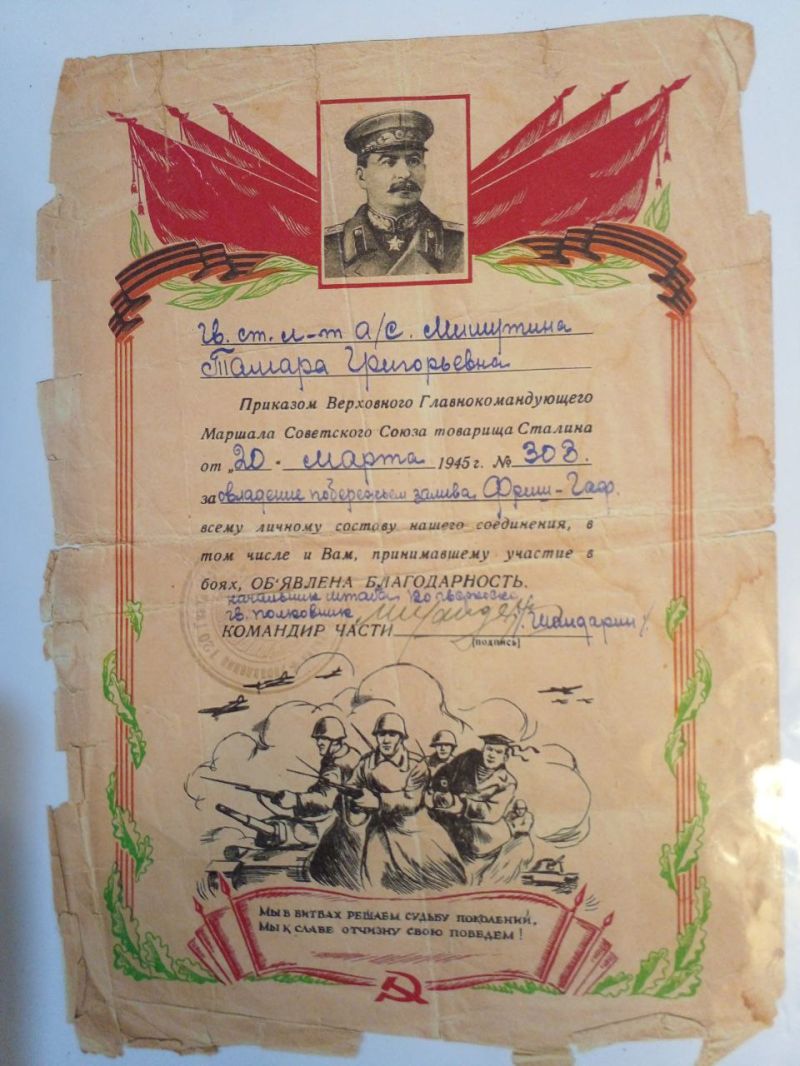 гв. ст. л-т а/с. Мишутина
Тамара Григорьевна
Приказом Верховного Главнокомандующего
Маршала Советского Союза товарища Сталина
от „20" марта 1945 г. № 303.
за овладение побережьем залива Фриш-Гаф.
всему личному составу нашего соединения, в
том числе и Вам, принимавшему участие в
боях, ОБ'ЯВЛЕНА БЛАГОДАРНОСТЬ.
начальник штаба 120
гв. полковник /Шандарин/.
КОМАНДИР ЧАСТИ
(подпись)
МЫ В БИТВАХ РЕШАЕМ СУДЬБУ ПОКОЛЕНИЙ,
МЫ К СЛАВЕ ОТЧИЗНУ СВОЮ ПОВЕДЕМ!